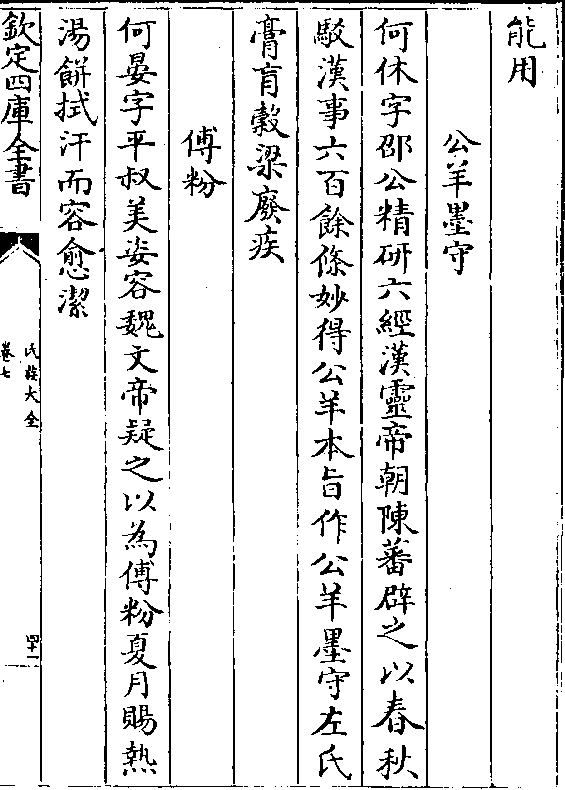 能用
公羊墨守
何休字邵公精研六經漢靈帝朝陳蕃辟之以春秋
駁漢事六百餘條妙得公羊本旨作公羊墨守左氏
膏肓榖梁廢疾
傅粉
何晏字平叔美姿容魏文帝疑之以為傅粉夏月賜熱
湯餅拭汗而容愈潔
欽定四庫全書
氏族大全
卷七
四十一